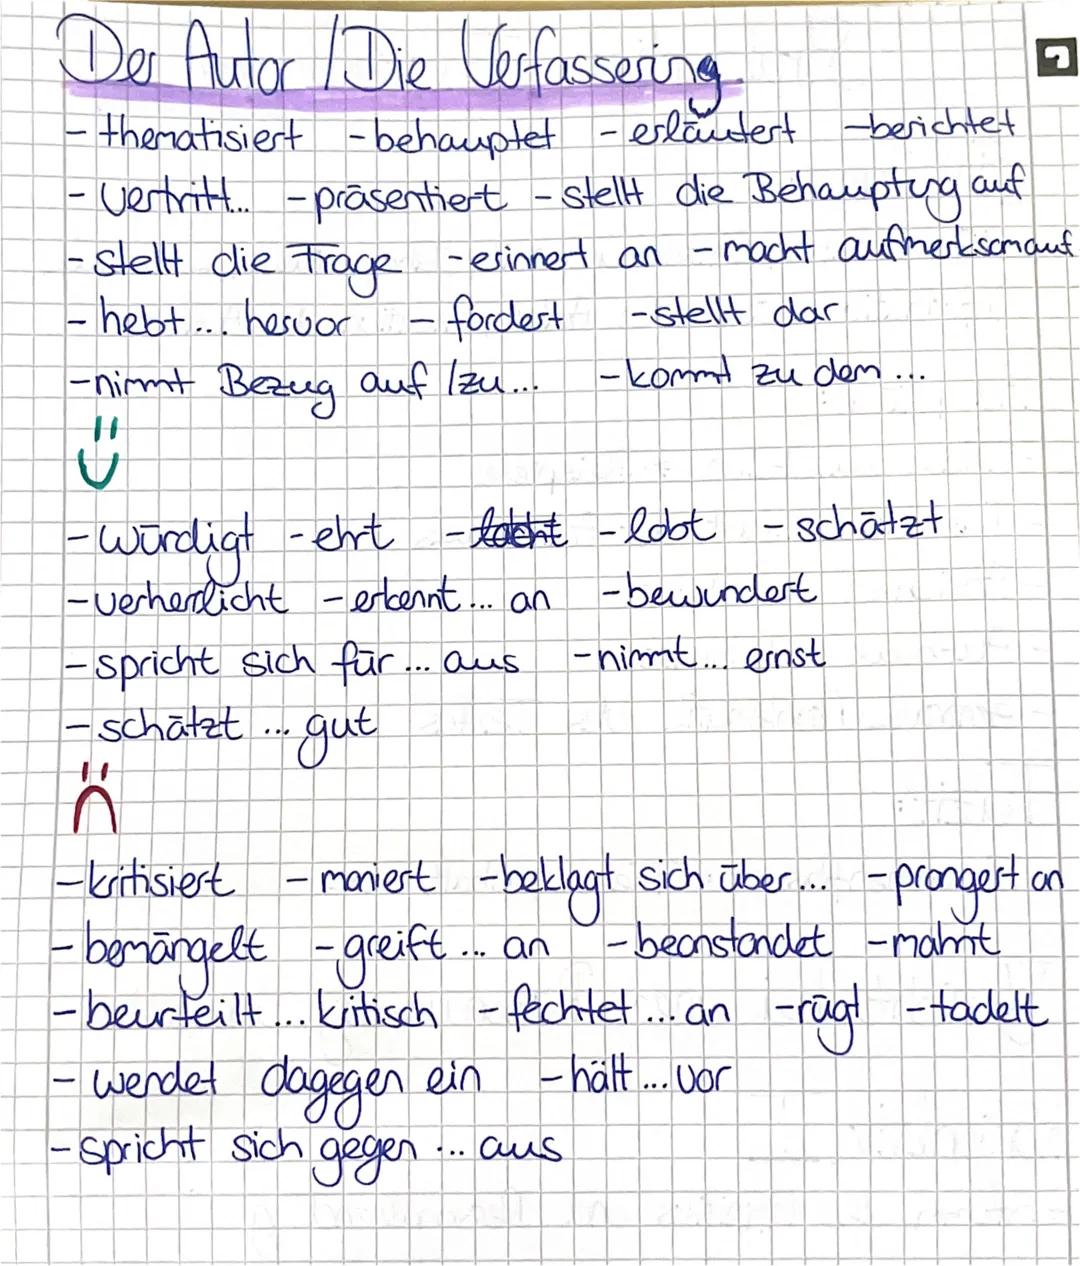 Der Autor / Die Verfasserin
- thematisiert - behauptet - erläutert - berichtet
- vertritt... - präsentiert - stellt die Behauptung auf
- stellt die Frage - erinnert an - macht aufmerksam auf
- hebt ... hervor - fordert - stellt dar
- nimmt Bezug auf / zu ... - kommt zu dem ...
- würdigt - ehrt - lobt - schätzt
- verherrlicht - erkennt ... an - bewundert
- spricht sich für ... aus - nimmt ... ernst
- schätzt ... gut
- kritisiert - moniert - beklagt sich über ... - prangert an
- bemängelt - greift ... an - beanstandet - mahnt
- beurteilt ... kritisch - fechtet ... an - rügt - tadelt
- wendet dagegen ein - hält ... vor
- spricht sich gegen ... aus